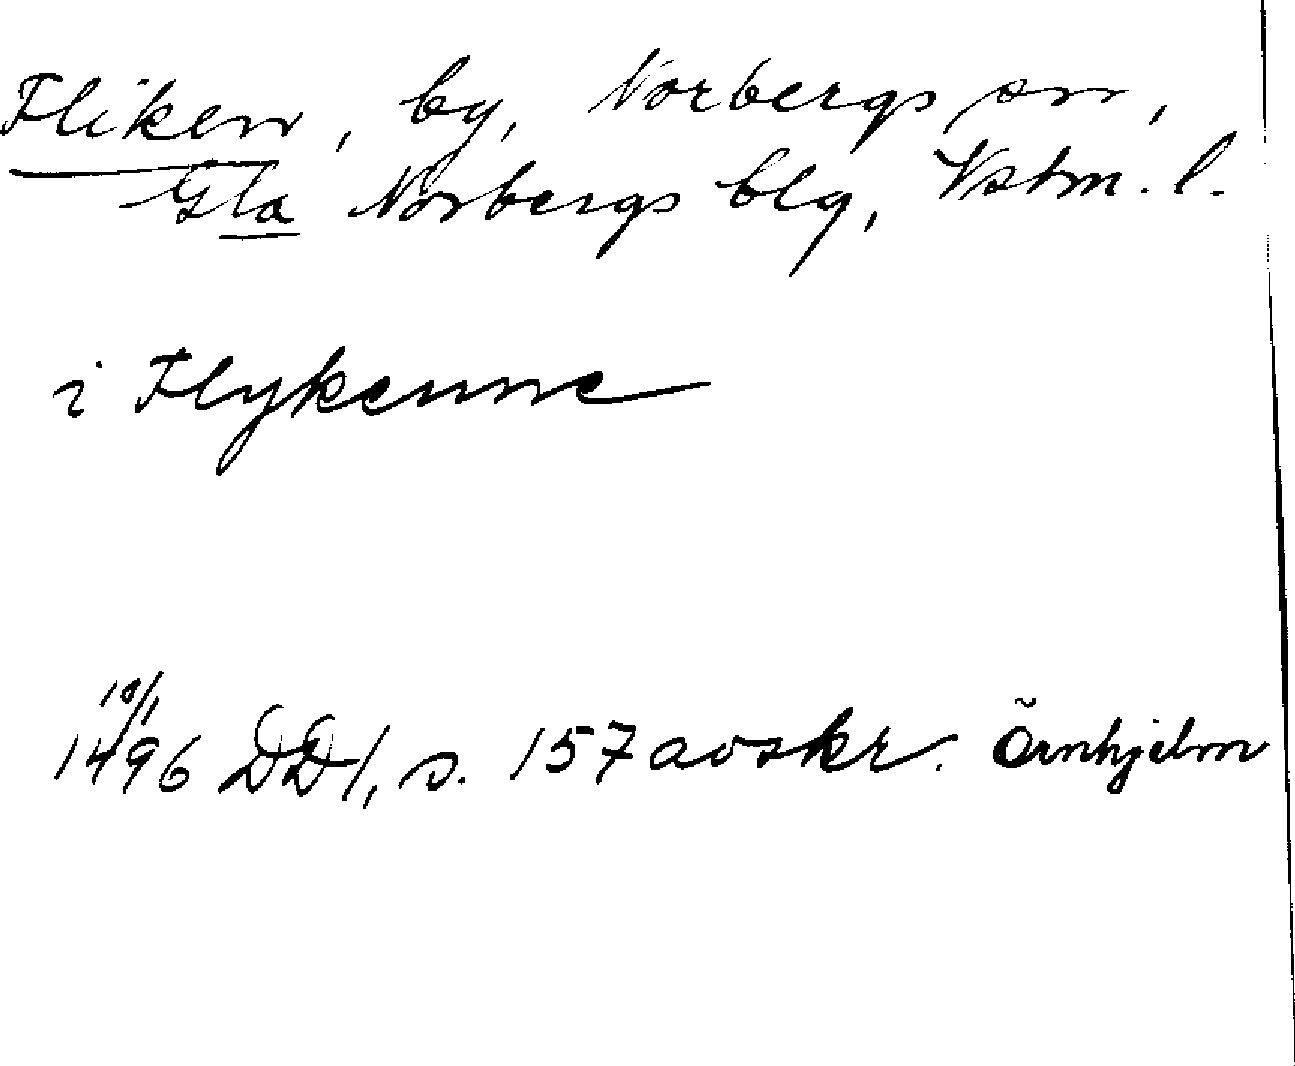 Fliken, by, Norbergs sn,
Gla Norbergs blg, Vstm. l.
i Flykenne
10/1
1496 DD1, s. 157 avskr. Örnhjelm